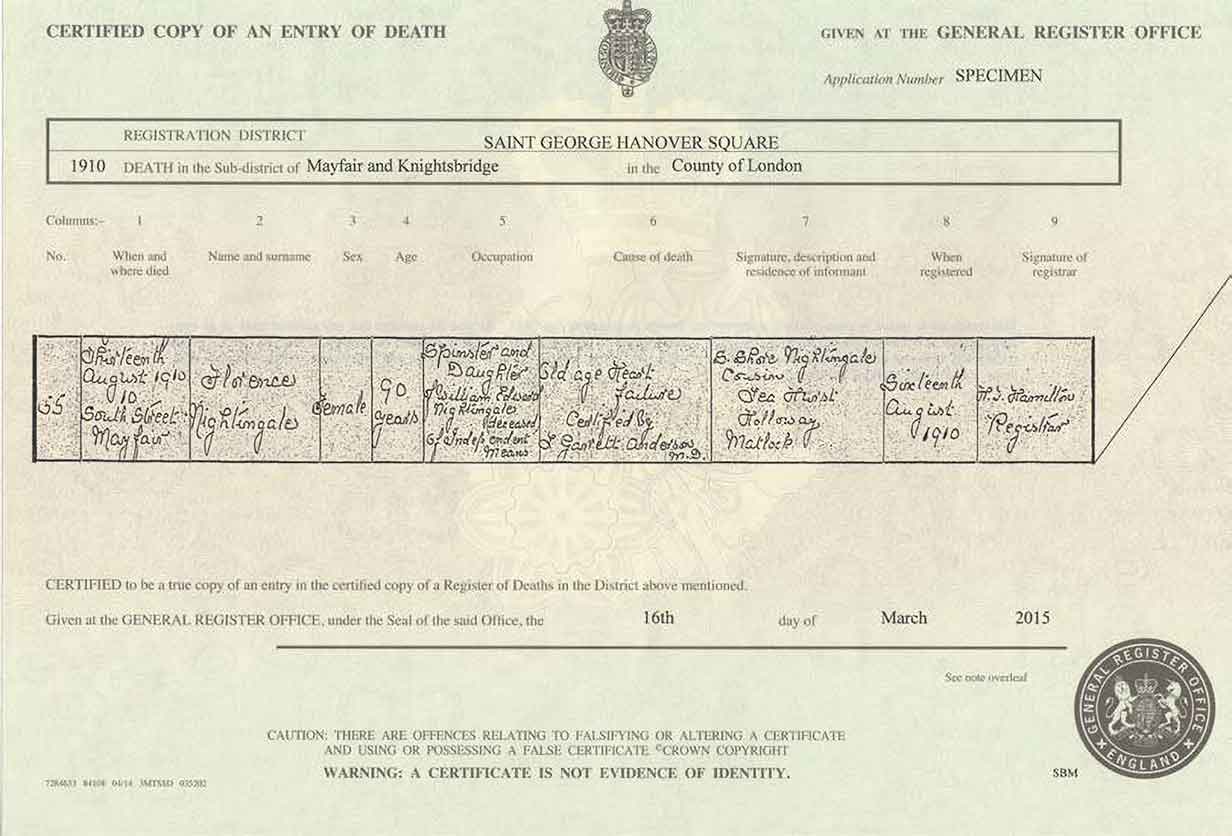 CERTIFIED COPY OF AN ENTRY OF DEATH
GIVEN AT THE GENERAL REGISTER OFFICE
Application Number SPECIMEN
REGISTRATION DISTRICT SAINT GEORGE HANOVER SQUARE
1910 DEATH in the Sub-district of Mayfair and Knightsbridge in the County of London
Columns:- 1 2 3 4 5 6 7 8 9
No. When and where died Name and surname Sex Age Occupation Cause of death Signature, description and residence of informant When registered Signature of registrar
55
Thirteenth
August 1910
10
South Street
Mayfair
Florence
Nightingale
Female
90
years
Spinster and
Daughter
of William Edward
Nightingale
(deceased)
of Independent
Means
Old age Heart
failure
Certified by
L Garrett Anderson
M.D.
S. Shore Nightingale
Cousin
Lea Hurst
Holloway
Matlock
Sixteenth
August
1910
H.J. Hamilton
Registrar
CERTIFIED to be a true copy of an entry in the certified copy of a Register of Deaths in the District above mentioned.
Given at the GENERAL REGISTER OFFICE, under the Seal of the said Office, the 16th day of March 2015
See note overleaf
CAUTION: THERE ARE OFFENCES RELATING TO FALSIFYING OR ALTERING A CERTIFICATE
AND USING OR POSSESSING A FALSE CERTIFICATE ©CROWN COPYRIGHT
WARNING: A CERTIFICATE IS NOT EVIDENCE OF IDENTITY.
GENERAL REGISTER OFFICE
ENGLAND
SBM
04/14